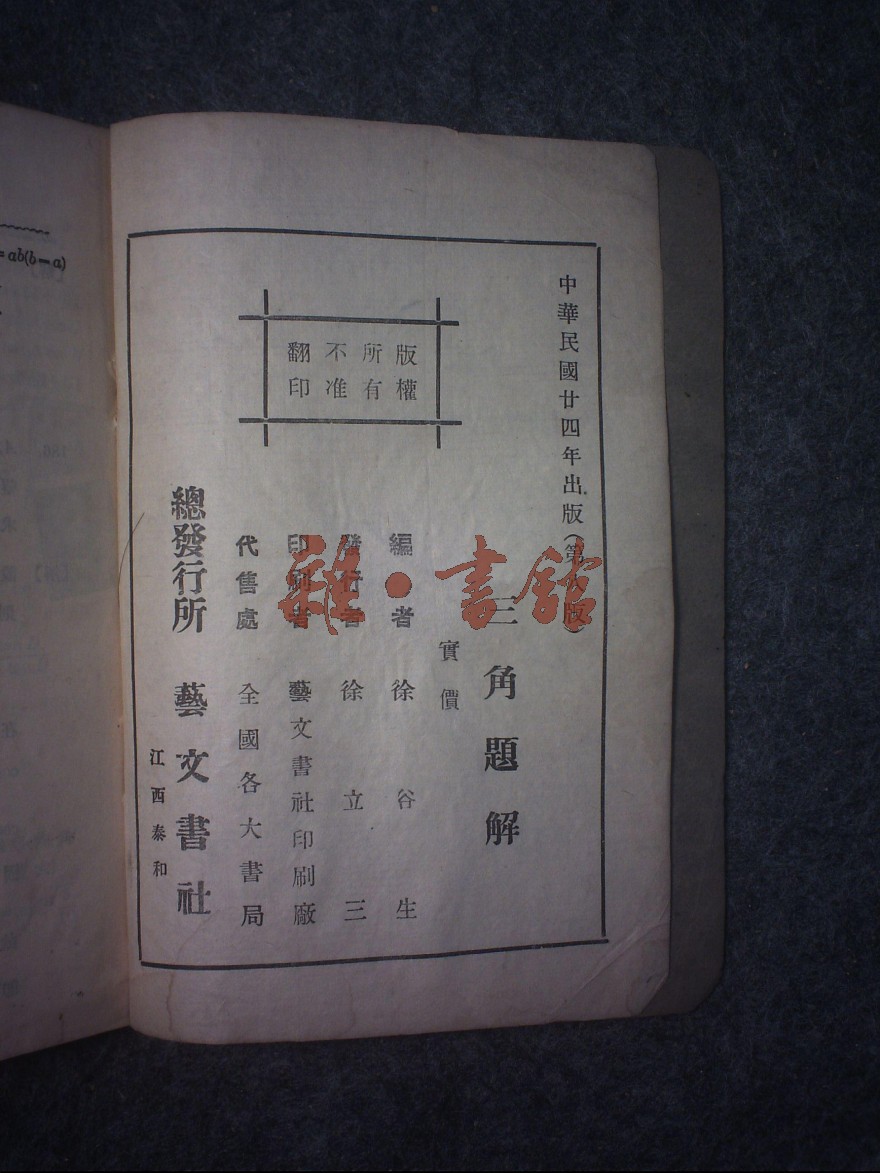 中華民國廿四年出版(第 版)
三角題解
實價
版權
所有
不准
翻印
編者 徐谷生
發行者 徐立三
印刷者 藝文書社印刷廠
代售處 全國各大書局
總發行所 藝文書社
江西泰和
=ab(b-a)
雅·書館